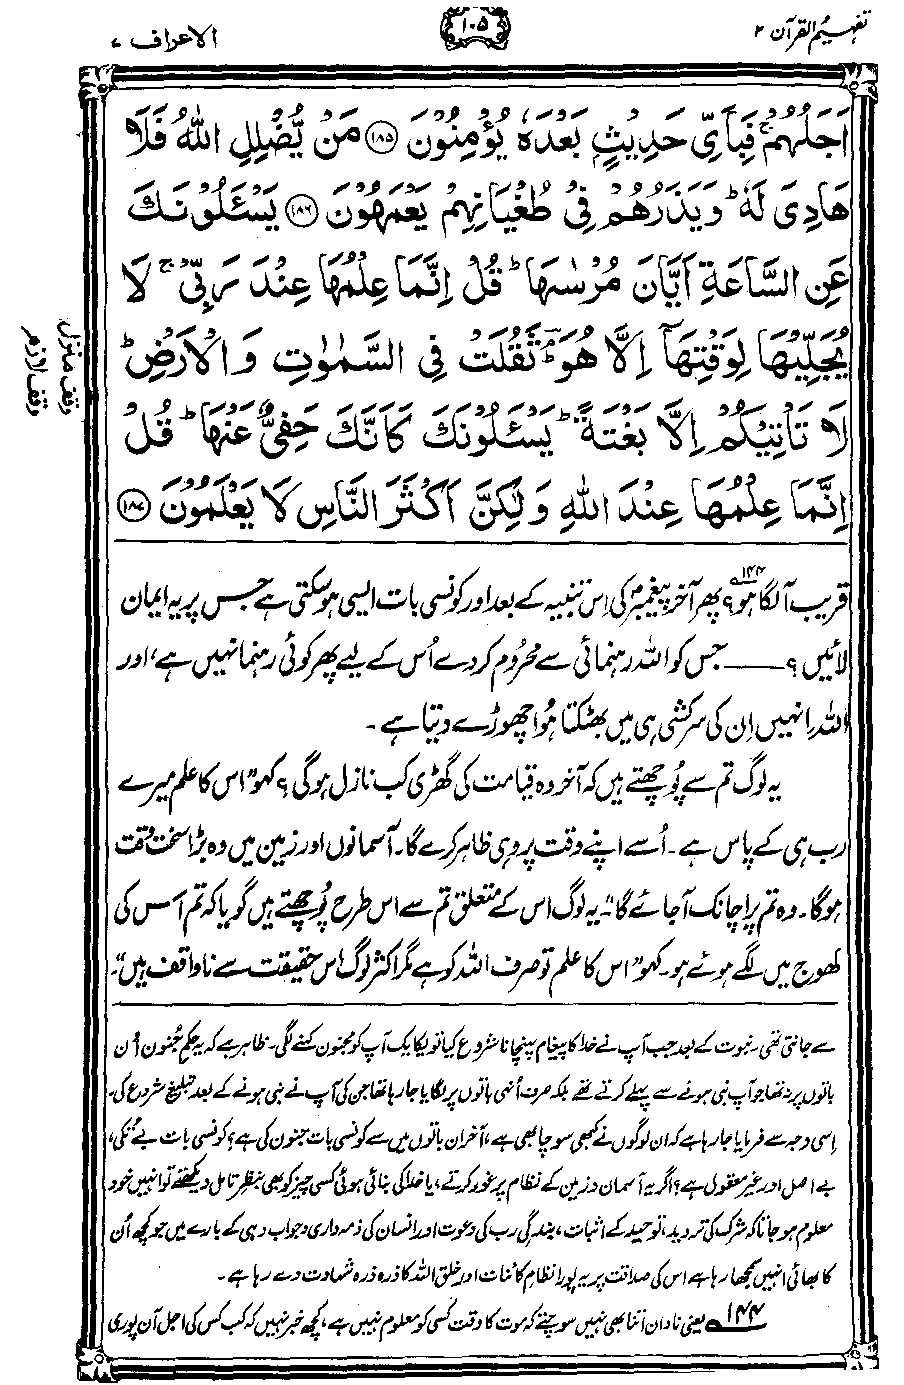 تفہیم القرآن ۲
۱۰۵
الاعراف ۷
اَجَلُهُمْ ۚ فَبِاَيِّ حَدِيْثٍۭ بَعْدَهٗ يُؤْمِنُوْنَ ﴿۱۸۵﴾ مَنْ يُّضْلِلِ اللّٰهُ فَلَا
هَادِيَ لَهٗ ؕ وَيَذَرُهُمْ فِيْ طُغْيَانِهِمْ يَعْمَهُوْنَ ﴿۱۸۶﴾ يَسْـَٔلُوْنَكَ
عَنِ السَّاعَةِ اَيَّانَ مُرْسٰىهَا ؕ قُلْ اِنَّمَا عِلْمُهَا عِنْدَ رَبِّيْ ۚ لَا
يُجَلِّيْهَا لِوَقْتِهَاۤ اِلَّا هُوَ ؔۘ ثَقُلَتْ فِي السَّمٰوٰتِ وَالْاَرْضِ ؕ
لَا تَاْتِيْكُمْ اِلَّا بَغْتَةً ؕ يَسْـَٔلُوْنَكَ كَاَنَّكَ حَفِيٌّ عَنْهَا ؕ قُلْ
اِنَّمَا عِلْمُهَا عِنْدَ اللّٰهِ وَلٰكِنَّ اَكْثَرَ النَّاسِ لَا يَعْلَمُوْنَ ﴿۱۸۷﴾
وقف منزل
وقف لازم
قریب آلگا ہو؟ ۱۴۴ پھر آخر پیغمبرؐ کی اِس تنبیہ کے بعد اور کونسی بات ایسی ہو سکتی ہے جس پر یہ ایمان
لائیں؟ ــــــ جس کو اللہ رہنمائی سے محرُوم کر دے اُس کے لیے پھر کوئی رہنما نہیں ہے، اور
اللہ اِنہیں اِن کی سرکشی ہی میں بھٹکتا ہُوا چھوڑے دیتا ہے۔
یہ لوگ تم سے پُوچھتے ہیں کہ آخر وہ قیامت کی گھڑی کب نازل ہوگی؟ کہو ”اس کا علم میرے
رب ہی کے پاس ہے۔ اُسے اپنے وقت پر وہی ظاہر کرے گا۔ آسمانوں اور زمین میں وہ بڑا سخت وقت
ہوگا۔ وہ تم پر اچانک آجائے گا“۔ یہ لوگ اس کے متعلق تم سے اس طرح پُوچھتے ہیں گویا کہ تم اُس کی
کھوج میں لگے ہوئے ہو۔ کہو ”اس کا علم تو صرف اللہ کو ہے مگر اکثر لوگ اس حقیقت سے ناواقف ہیں“۔
سے جانتی تھی۔ نبوت کے بعد جب آپ نے خدا کا پیغام پہنچانا شروع کیا تو یکایک آپ کو مجنون کہنے لگی۔ ظاہر ہے کہ یہ حکمِ جُنون اُن
باتوں پر نہ تھا جو آپ نبی ہونے سے پہلے کرتے تھے بلکہ صرف اُنہی باتوں پر لگایا جا رہا تھا جن کی آپ نے نبی ہونے کے بعد تبلیغ شروع کی۔
اِسی وجہ سے فرمایا جا رہا ہے کہ ان لوگوں نے کبھی سوچا بھی ہے، آخر ان باتوں میں سے کونسی بات جنون کی ہے؟ کونسی بات بے تُکی،
بے اصل اور غیر معقول ہے؟ اگر یہ آسمان و زمین کے نظام پر غور کرتے، یا خدا کی بنائی ہوئی کسی چیز کو بھی بنظرِ تامل دیکھتے تو انہیں خود
معلوم ہو جاتا کہ شرک کی تردید، توحید کے اثبات، بندگیِ رب کی دعوت اور انسان کی ذمہ داری و جواب دہی کے بارے میں جو کچھ اُن
کا بھائی انہیں سمجھا رہا ہے اس کی صداقت پر یہ پورا نظامِ کائنات اور خلق اللہ کا ذرہ ذرہ شہادت دے رہا ہے۔
۱۴۴ یعنی نادان اتنا بھی نہیں سوچتے کہ موت کا وقت کسی کو معلوم نہیں ہے، کچھ خبر نہیں کہ کب کس کی اجل آن پوری